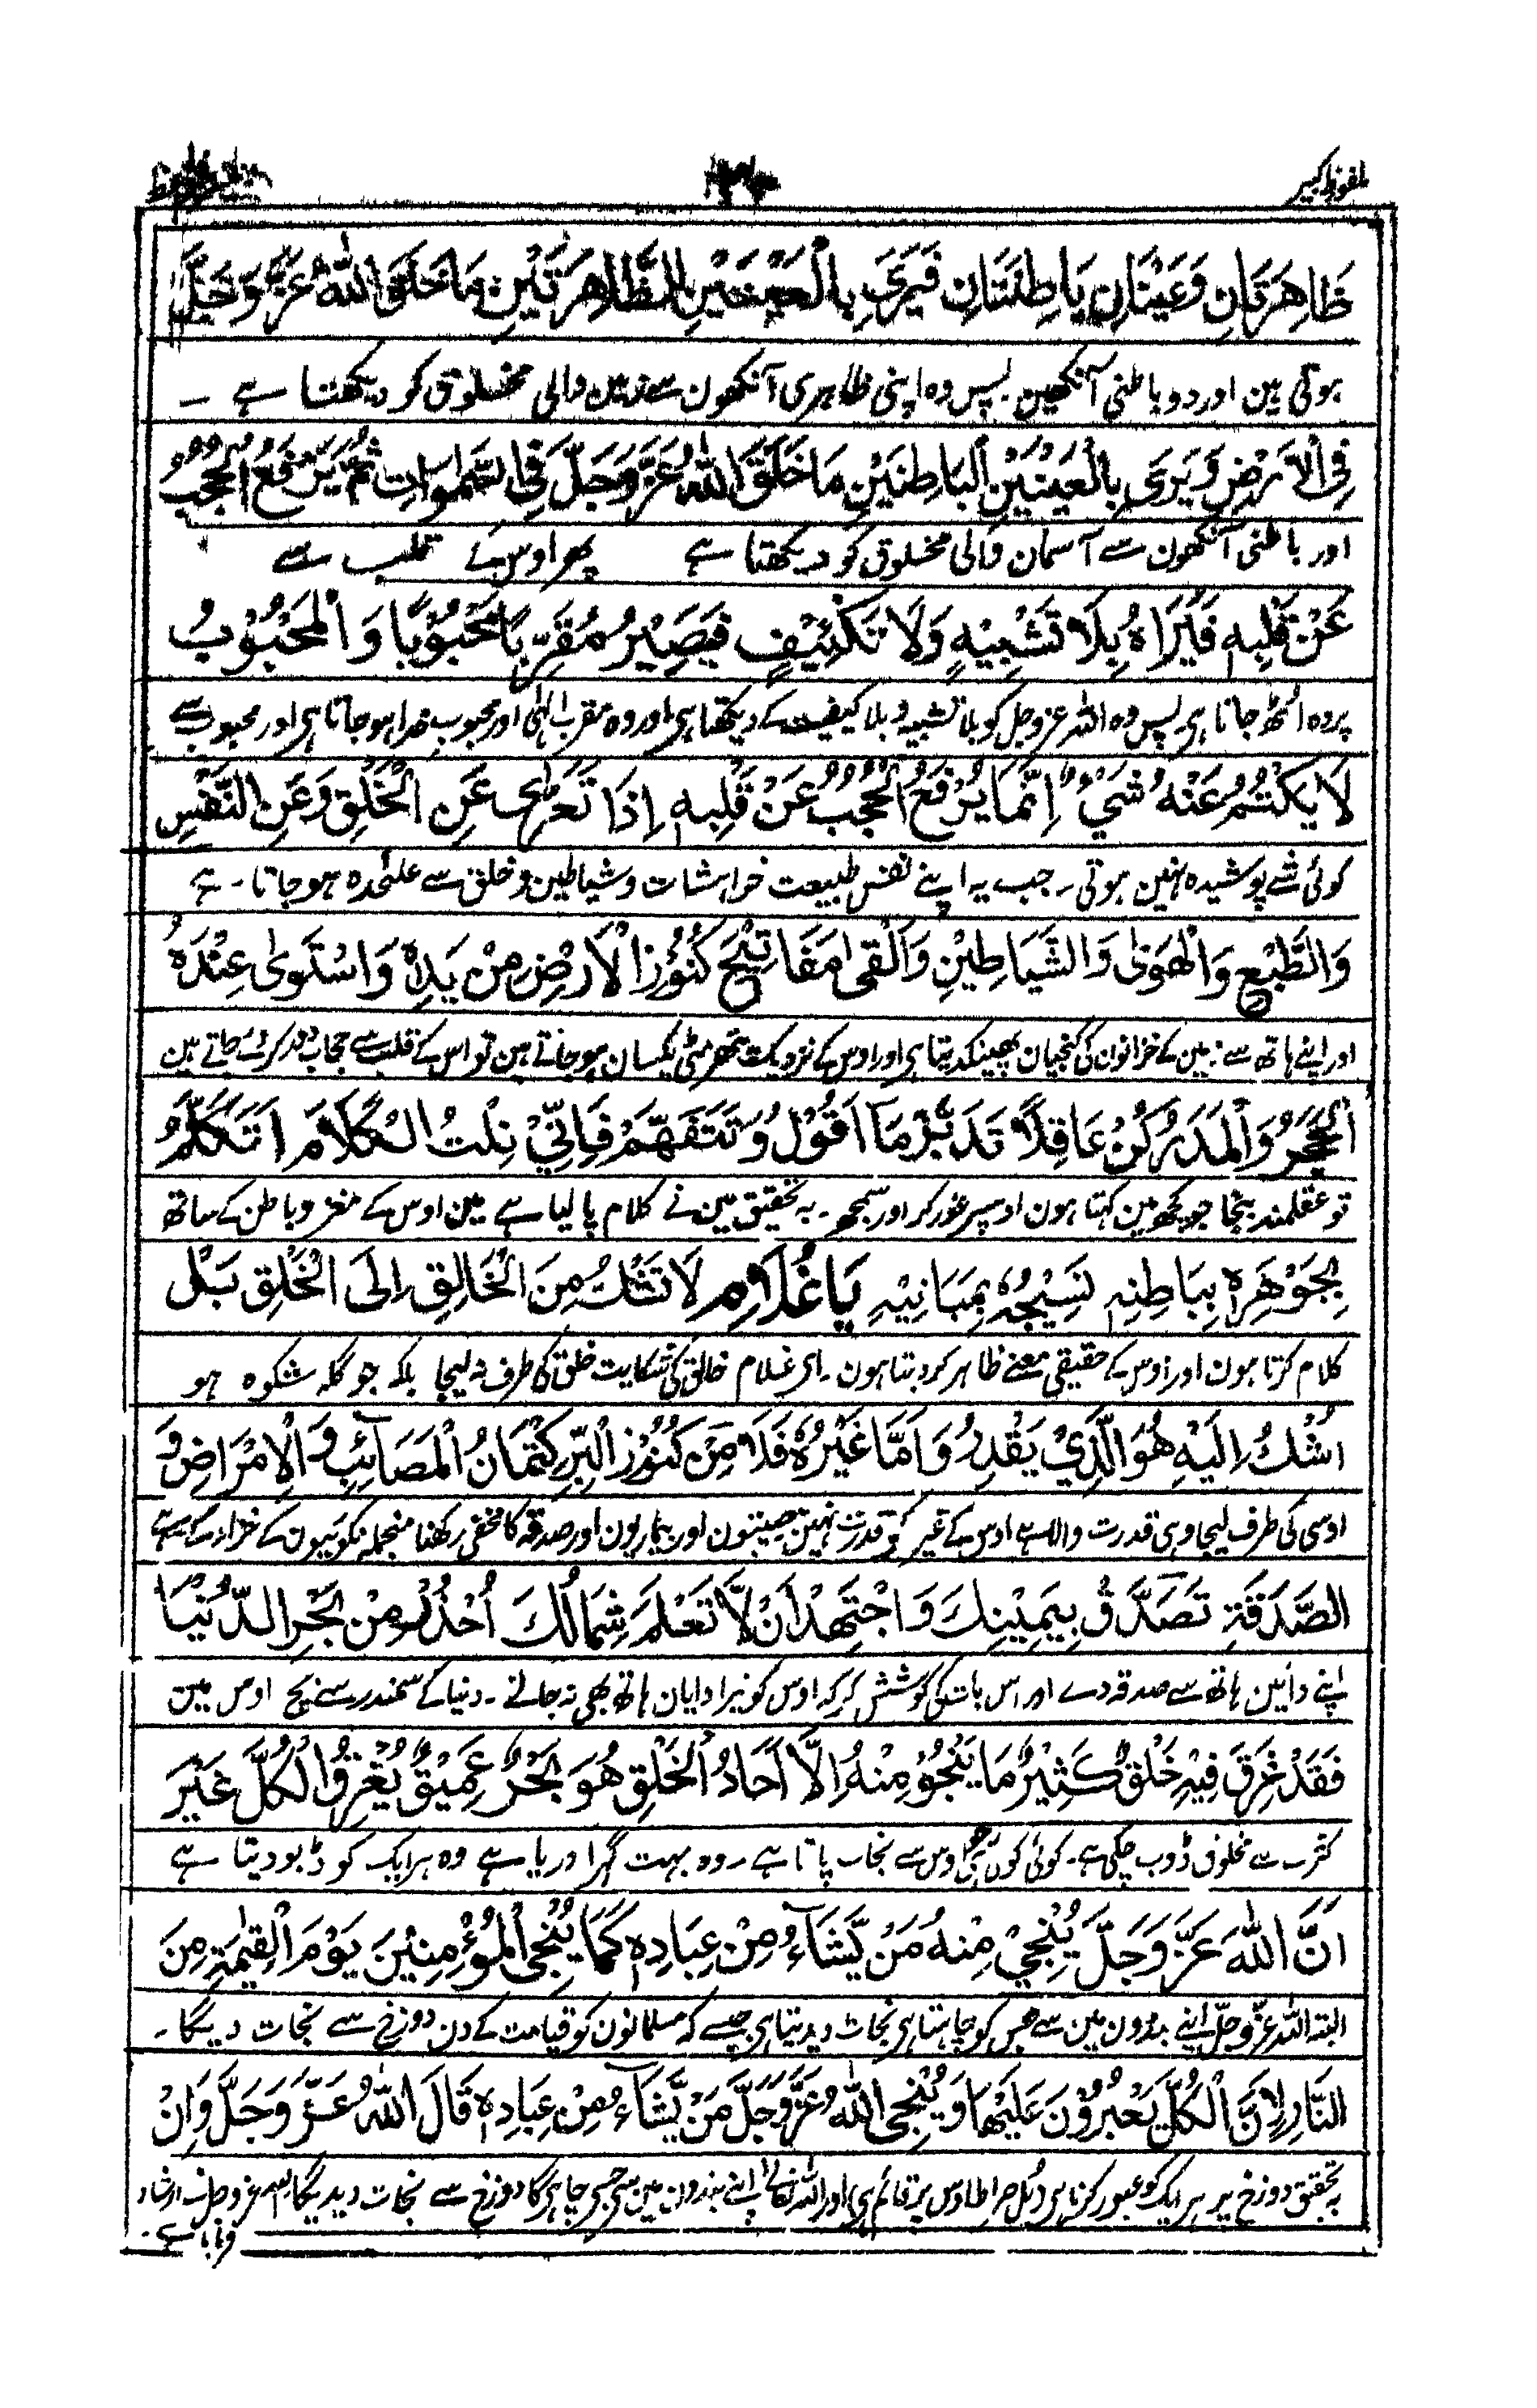 ملفوظ کبیر
ظَاهِرَتَانِ وَعَيْنَانِ بَاطِنَتَانِ فَيَرَى بِالْعَيْنَيْنِ الظَّاهِرَتَيْنِ مَا خَلَقَ اللهُ عَزَّ وَجَلَّ
ہوتی ہین اور دو باطنی آنکھین۔ پس وہ اپنی ظاہری آنکھون سے زمین والی مخلوق کو دیکھتا ہے ۔
فِي الْأَرْضِ وَيَرَى بِالْعَيْنَيْنِ الْبَاطِنَيْنِ مَا خَلَقَ اللهُ عَزَّ وَجَلَّ فِي السَّمٰوَاتِ ثُمَّ يَرْفَعُ الْحُجُبُ
اور باطنی آنکھون سے آسمان والی مخلوق کو دیکھتا ہے پھر اوس کے قلب سے
عَنْ قَلْبِهٖ فَيَرَاهُ بِلَا تَشْبِيْهٍ وَلَا تَكْيِيْفٍ فَيَصِيْرُ مُقَرَّبًا مَحْبُوْبًا وَالْمَحْبُوْبُ
پردہ اٹھ جاتا ہی پس وہ اللہ عزوجل کو بلا تشبیہ و بلا کیفیت کے دیکھتا ہی اور وہ مقرب الٰہی اور محبوب خدا ہو جاتا ہی اور محبوب سے
لَا يُكْتَمُ عَنْهُ شَيْءٌ اِنَّمَا يُرْفَعُ الْحُجُبُ عَنْ قَلْبِهٖ اِذَا تَعَرّٰى عَنِ الْخَلْقِ وَعَنِ النَّفْسِ
کوئی شے پوشیدہ نہین ہوتی۔ جب یہ اپنے نفس طبیعت خواہشات و شیاطین و خلق سے علٰحدہ ہو جاتا۔ ہے
وَالطَّبْعِ وَالْهَوٰى وَالشَّيَاطِيْنِ وَاَلْقٰى مَفَاتِيْحَ كُنُوْزِ الْاَرْضِ مِنْ يَدِهٖ وَاسْتَوٰى عِنْدَهُ
اور اپنے ہاتھ سے زمین کے خزانون کی کنجیان پھینکدیتا ہی اور اوس کے نزدیک پتھر مٹی یکسان ہو جاتے ہین تو اس کے قلب سے حجاب دور کردئے جاتے ہین
الْحَجَرُ وَالْمَدَرُ كُنْ عَاقِلًا تَدَبَّرْ مَا اَقُوْلُ وَتَتَفَهَّمْ فَاِنِّيْ نِلْتُ الْكَلَامَ اَتَكَلَّمُ
تو عقلمند بنجا جو کچھ مین کہتا ہون اوسپر غور کر اور سمجھ۔ بہ تحقیق مین نے کلام پا لیا ہے مین اوس کے مغز و باطن کے ساتھ
بِجَوْهَرِهٖ بِبَاطِنِهٖ نَسِيْجُهٗ بِمَبَانِيْهِ يَا غُلَامِ لَا تَشْكُ مِنَ الْخَالِقِ اِلَى الْخَلْقِ بَلْ
کلام کرتا ہون اور اوس کے حقیقی معنے ظاہر کر دیتا ہون۔ ای غلام خالق کی شکایت خلق کی طرف نہ لیجا بلکہ جو گلہ شکوہ ہو
اُشْكُ اِلَيْهِ هُوَ الَّذِيْ يَقْدِرُ وَاَمَّا غَيْرُهٗ فَلَا مِنْ كُنُوْزِ الْبِرِّ كِتْمَانُ الْمَصَآئِبِ وَالْاِمْرَاضِ وَ
اوسی کی طرف لیجا وہی قدرت والا ہے اوس کے غیر کو قدرت نہین مصیبتون اور بیماریون اور صدقہ کا مخفی رکھنا منجملہ نکوئیون کے خزانہ کے ہے
الصَّدَقَةِ تَصَدَّقْ بِيَمِيْنِكَ وَاجْتَهِدْ اَنْ لَّا تَعْلَمَ شِمَالُكَ اُحْذُرْ مِنْ بَحْرِ الدُّنْيَا
اپنے دائین ہاتھ سے صدقہ دے اور اس بات کی کوشش کر کہ اوس کو تیرا دایان ہاتھ بھی نہ جانے۔ دنیا کے سمندر سے بچ اوس مین
فَقَدْ غَرِقَ فِيْهِ خَلْقٌ كَثِيْرٌ مَا يَنْجُوْ مِنْهُ اِلَّا اَحَادُ الْخَلْقِ هُوَ بَحْرٌ عَمِيْقٌ يُغْرِقُ الْكُلَّ غَيْرَ
کثرت سے مخلوق ڈوب چکی ہے۔ کوئی کوئی ہی اوس سے نجات پاتا ہے۔ وہ بہت گہرا دریا ہے وہ ہر ایک کو ڈبو دیتا ہے
اَنَّ اللهَ عَزَّ وَجَلَّ يُنْجِيْ مِنْهُ مَنْ يَّشَآءُ مِنْ عِبَادِهٖ كَمَا يُنْجِي الْمُؤْمِنِيْنَ يَوْمَ الْقِيٰمَةِ مِنَ
البتہ اللہ عزّوجلّ اپنے بندون مین سے جس کو چاہتا ہی نجات دیدیتا ہی جیسے کہ مسلمانون کو قیامت کے دن دوزخ سے نجات دیگا۔
النَّارِ لِاَنَّ الْكُلَّ يَعْبُرُوْنَ عَلَيْهَا وَيُنْجِي اللهُ عَزَّ وَجَلَّ مَنْ يَّشَآءُ مِنْ عِبَادِهٖ قَالَ اللهُ عَزَّ وَجَلَّ وَاِنْ
بہ تحقیق دوزخ پر ہر ایک کو عبور کرنا ہی پل صراط اوس پر قائم ہی اور اللہ تعالے اپنے بندون مین سے جسے چاہیگا دوزخ سے نجات دیدیگا اللہ عزوجل نے ارشاد
فرمایا ہے۔